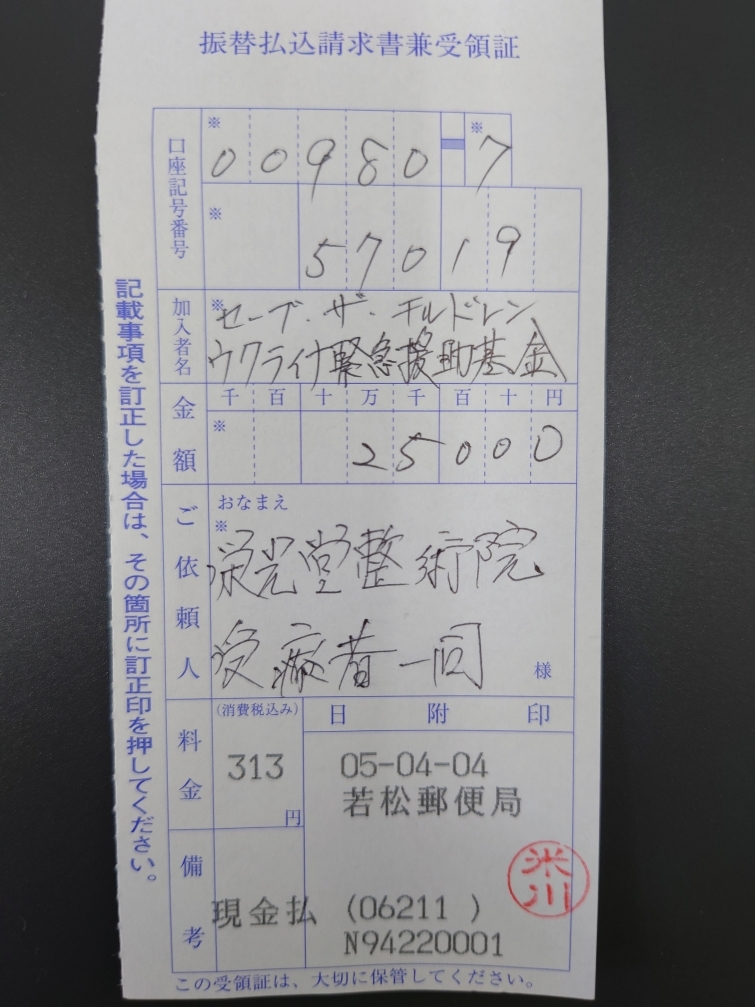 振替払込請求書兼受領証
口座記号番号
※
00980-
※
7
※
57019
加入者名
※
セーブ・ザ・チルドレン
ウクライナ緊急援助基金
金額
千百十万千百十円
※
25000
ご依頼人
おなまえ
※
栄光堂整術院
受療者一同
様
料金
(消費税込み)
313
円
日附印
05-04-04
若松郵便局
米川
備考
現金払 (06211 )
N94220001
この受領証は、大切に保管してください。
記載事項を訂正した場合は、その箇所に訂正印を押してください。